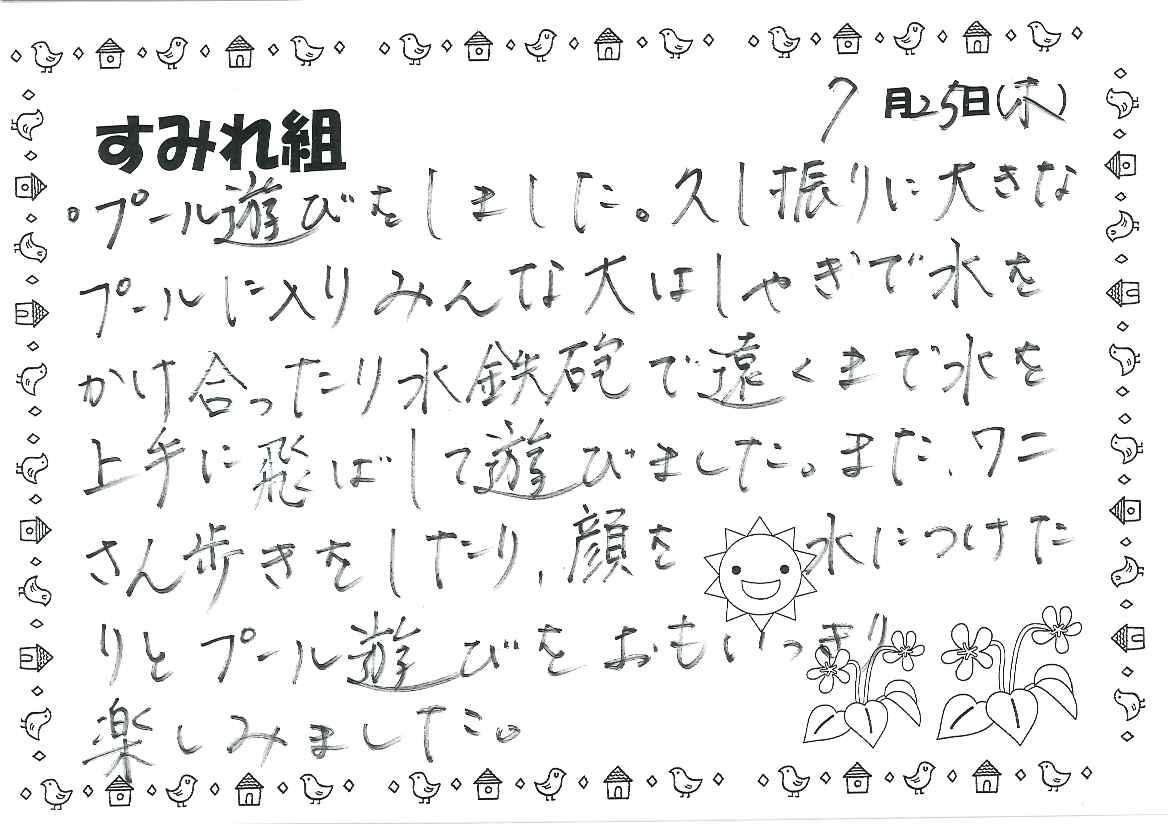 7月25日(木)
すみれ組
。プール遊びをしました。久し振りに大きな
プールに入りみんな大はしゃぎで水を
かけ合ったり水鉄砲で遠くまで水を
上手に飛ばして遊びました。また、ワニ
さん歩きをしたり、顔を水につけた
りとプール遊びをおもいっきり
楽しみました。